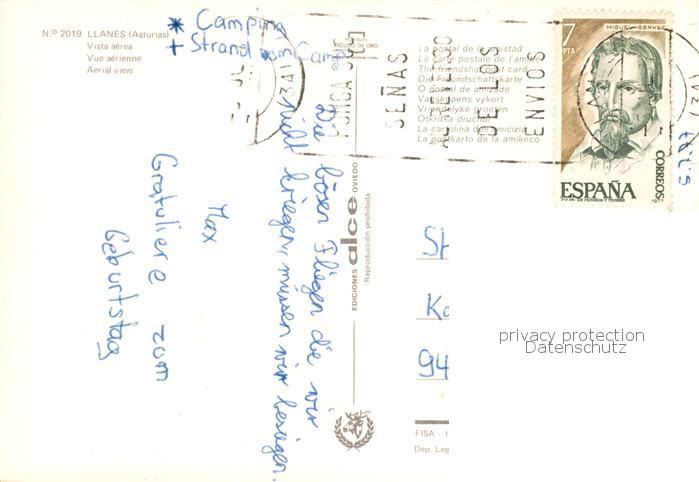 N.º 2019 LLANES (Asturias)
Vista aérea
Vue aérienne
Aerial view
* Camping
+ Strand vom Camp
Die bösen Fliegen die wir
nicht kriegen, müssen wir besiegen.
Max
Gratuliere zum
Geburtstag
La postal de la amistad
La carte postale de l'amitié
The friendship post card
Die Freundschaftskarte
O postal de amizade
Vanskapens vykort
Vriendelyke groeten
Otkritka druchoi
La cartolina dell'amicizia
La postkarto de la amikeco
PONGA SUS
SEÑAS
DE LOS
ENVIOS
7 PTA
MIGUEL SERVET
CORREOS
ESPAÑA
EDICIONES alce OVIEDO
Reproducción prohibida
94
privacy protection
Datenschutz
FISA - I
Dep. Leg